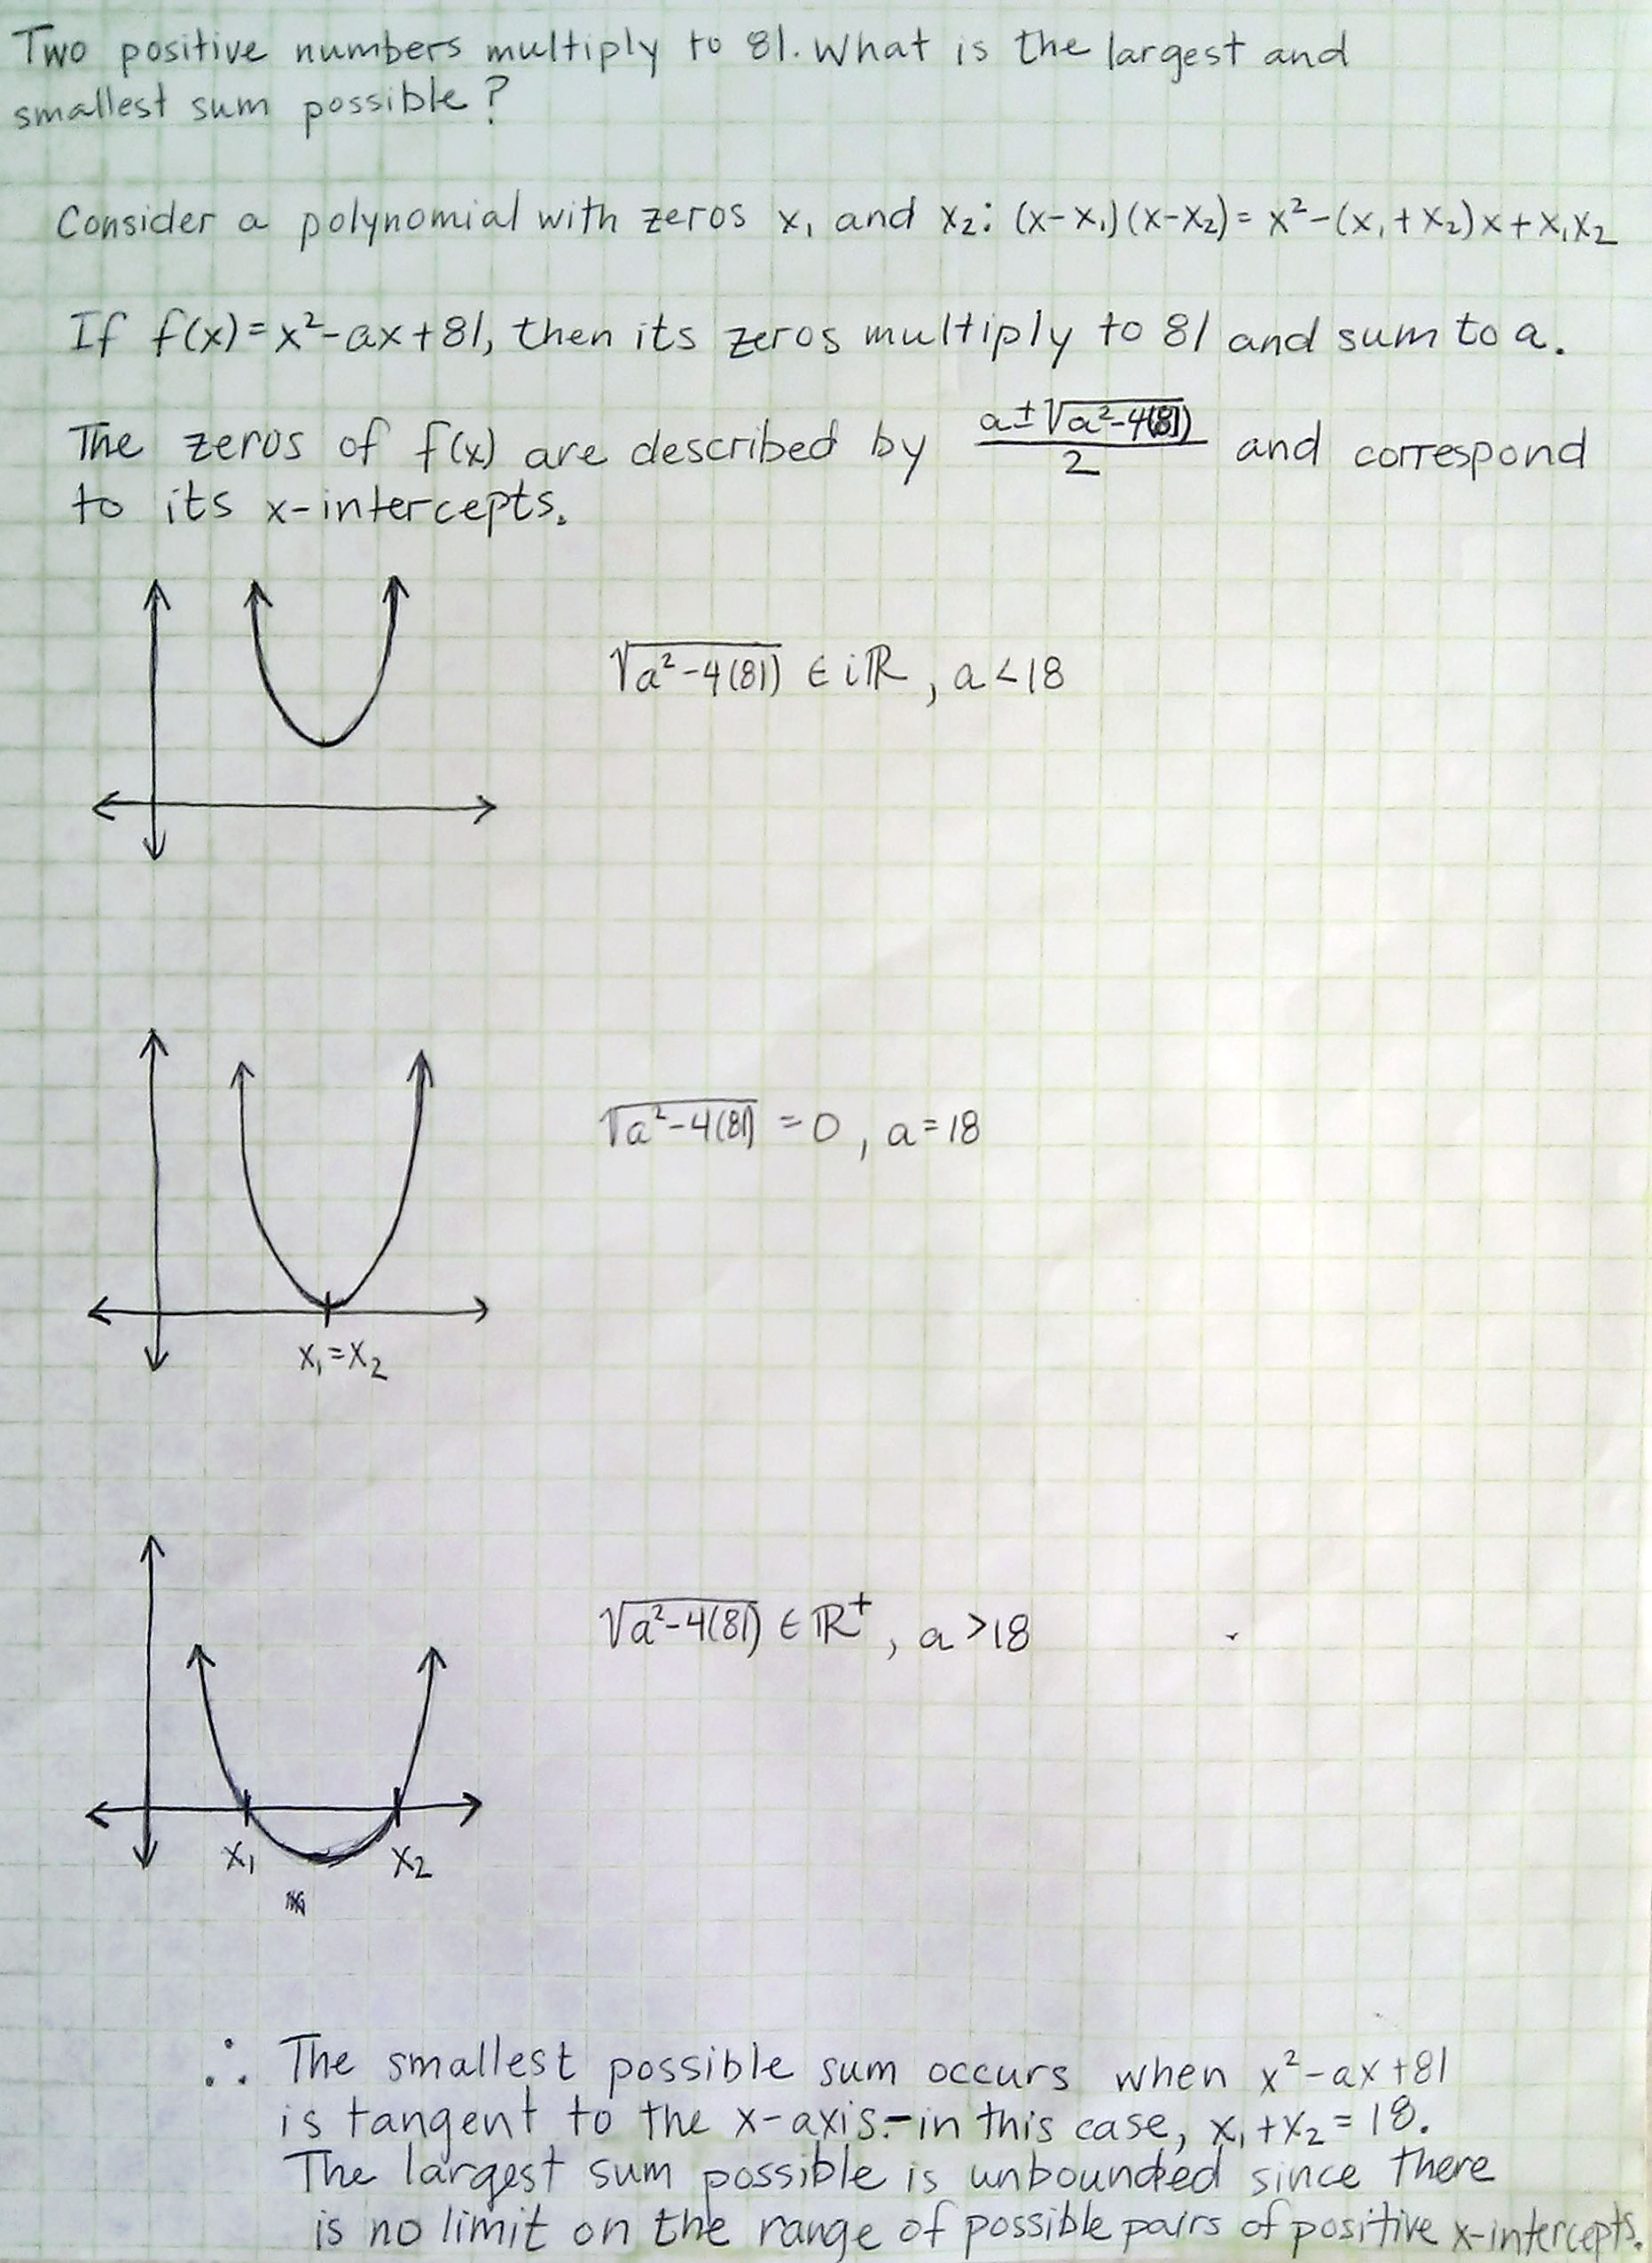 Two positive numbers multiply to 81. What is the largest and
smallest sum possible?
Consider a polynomial with zeros x₁ and x₂: (x-x₁)(x-x₂)= x²-(x₁+x₂)x+x₁x₂
If f(x)=x²-ax+81, then its zeros multiply to 81 and sum to a.
The zeros of f(x) are described by (a±√(a²-4(81)))/2 and correspond
to its x-intercepts.
√(a²-4(81)) ∈ iℝ, a<18
√(a²-4(81)) = 0, a=18
x₁=x₂
√(a²-4(81)) ∈ ℝ⁺, a>18
x₁ x₂
∴ The smallest possible sum occurs when x²-ax+81
is tangent to the x-axis.-in this case, x₁+x₂=18.
The largest sum possible is unbounded since there
is no limit on the range of possible pairs of positive x-intercepts.